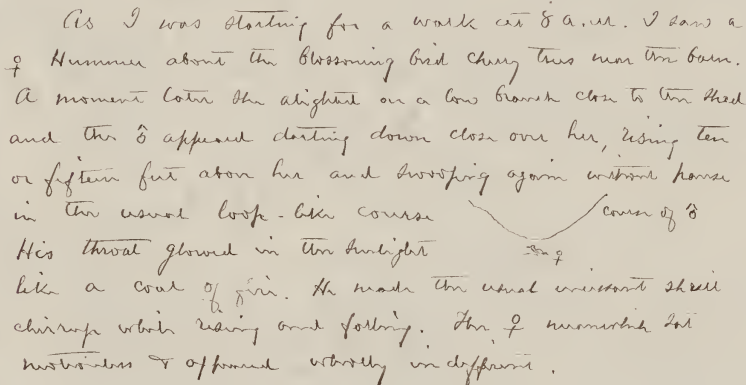 As I was starting for a walk at 8 a.m. I saw a
♀ Hummer about the blossoming bird cherry trees near the barn.
A moment later she alighted on a low branch close to the shed
and the ♂ appeared darting down close over her, rising ten
or fifteen feet above her and swooping again without pause
in the usual loop-like course
course of ♂
♀
His throat glowed in the sunlight
like a coal of fire. He made the usual incessant shrill
chirrup while rising and falling. The ♀ meanwhile sat
motionless & appeared wholly indifferent.